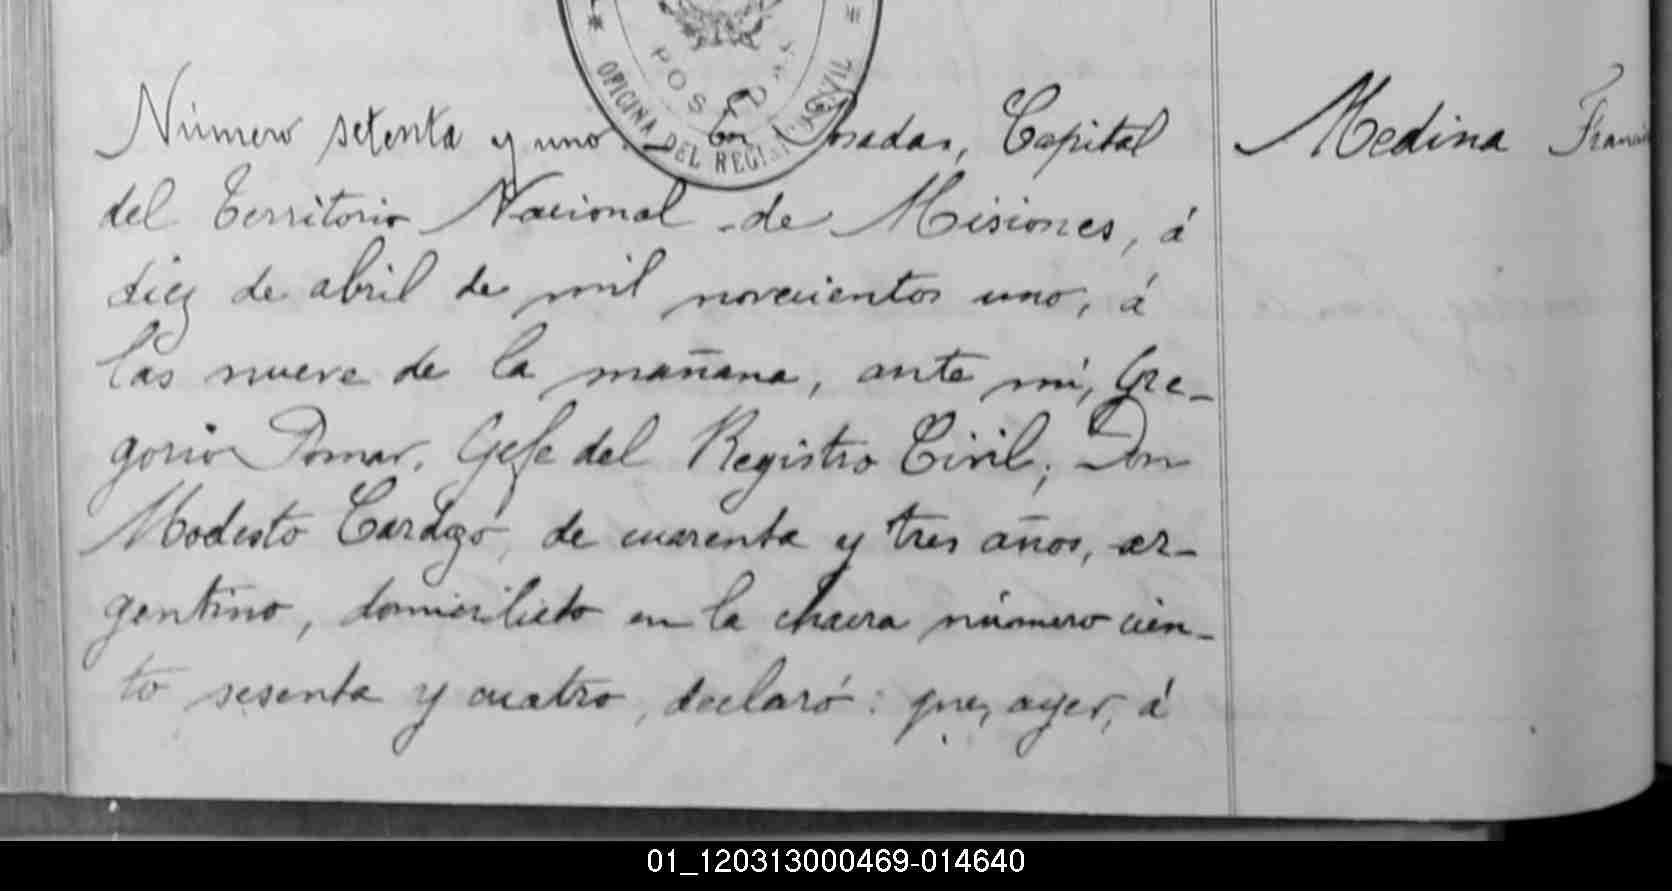 OFICINA DEL REGISTRO CIVIL
POSADAS
Número setenta y uno. En Posadas, Capital
Medina
del Territorio Nacional de Misiones, á
diez de abril de mil novecientos uno, á
las nueve de la mañana, ante mí, Gre-
gorio Pomar, Gefe del Registro Civil, Don
Modesto de cuarenta y tres años, ar-
gentino, domicilido en la chacra número cien-
to sesenta y cuatro, declaró: que, ayer, á
01_120313000469-014640